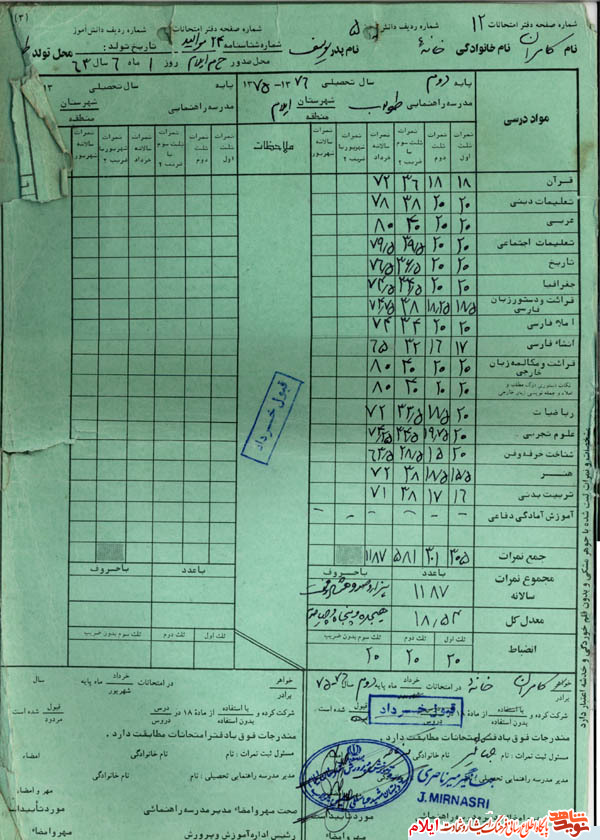 (۳)
شماره صفحه دفتر امتحانات ۱۲ شماره ردیف دانش‌آموز ۵ شماره صفحه دفتر امتحانات شماره ردیف دانش‌آموز
نام کامران نام خانوادگی خانه‌ء نام پدر یوسف شماره شناسنامه ۲۴ تاریخ تولد: محل تولد
محل صدور ایلام روز ۱ ماه ۶ سال ۶۳
مواد درسی
پایه دوم سال تحصیلی ۷۶ - ۱۳۷۵
مدرسه راهنمایی شهرستان ایلام
منطقه
نمرات ثلث اول
نمرات ثلث دوم
نمرات ثلث سوم با ضریب ۲
نمرات سالانه خرداد
نمرات شهریور با ضریب ۲
نمرات سالانه شهریور
ملاحظات
پایه سال تحصیلی ۱۳
مدرسه راهنمایی شهرستان
منطقه
قرآن ۱۸ ۱۸ ۳۶ ۷۲
تعلیمات دینی ۲۰ ۲۰ ۳۸ ۷۸
عربی ۲۰ ۲۰ ۴۰ ۸۰
تعلیمات اجتماعی ۲۰ ۲۰ ۳۹/۵ ۷۹/۵
تاریخ ۲۰ ۲۰ ۳۶/۵ ۷۶/۵
جغرافیا ۲۰ ۲۰ ۳۴/۵ ۷۴/۵
قرائت و دستور زبان فارسی ۱۸/۵ ۱۸/۲۵ ۳۸ ۷۴/۷۵
املاء فارسی ۲۰ ۲۰ ۳۴ ۷۴
انشاء فارسی ۱۷ ۱۶ ۳۲ ۶۵
قرائت و مکالمه زبان خارجی ۲۰ ۲۰ ۴۰ ۸۰
نکات دستوری درک مطلب و املاء و جمله نویسی زبان خارجی ۲۰ ۲۰ ۴۰ ۸۰
ریاضیات ۲۰ ۱۸/۵ ۳۳/۵ ۷۲
علوم تجربی ۲۰ ۱۹/۷۵ ۳۴/۵ ۷۴/۲۵
شناخت حرفه و فن ۲۰ ۱۵ ۲۸/۵ ۶۳/۵
هنر ۱۵/۵ ۱۸/۵ ۳۸ ۷۲
تربیت بدنی ۱۶ ۱۷ ۳۸ ۷۱
آموزش آمادگی دفاعی – – – –
جمع نمرات ۳۰۵ ۳۰۱ ۵۸۱ ۱۱۸۷
باعدد باحروف
مجموع نمرات سالانه ۱۱۸۷
معدل کل ۱۸/۵۴
ثلث اول ثلث دوم ثلث سوم بدون ضریب
انضباط ۲۰ ۲۰ ۲۰
قبول خرداد
خواهر برادر کامران خانه‌ء در امتحانات خرداد شهریور ماه پایه دوم سال ۷۶-۷۵
شرکت کرده و با استفاده بدون استفاده از ماده ۱۸ در دروس قبول شده است.
قبول خرداد
مندرجات فوق با دفتر امتحانات مطابقت دارد.
مسئول ثبت نمرات: نام نام خانوادگی
مدیر مدرسه راهنمایی تحصیلی: نام
J.MIRNASRI
خواهر برادر در امتحانات خرداد شهریور ماه پایه سال
شرکت کرده و با استفاده بدون استفاده از ماده ۱۸ در دروس قبول مردود شده است.
مندرجات فوق با دفتر امتحانات مطابقت دارد.
مسئول ثبت نمرات: نام نام خانوادگی امضاء
مدیر مدرسه راهنمایی تحصیلی: نام نام خانوادگی مهر و امضاء
صحت مهر و امضاء مدیر مدرسه راهنمائی مورد تأیید است
رئیس اداره آموزش و پرورش مهر و امضاء
مشخصات و نمرات ثبت شده با جوهر مشکی و بدون قلم خوردگی و خدشه اعتبار دارد
نوید شاهد
پایگاه اطلاع رسانی فرهنگ ایثار و شهادت ایلام